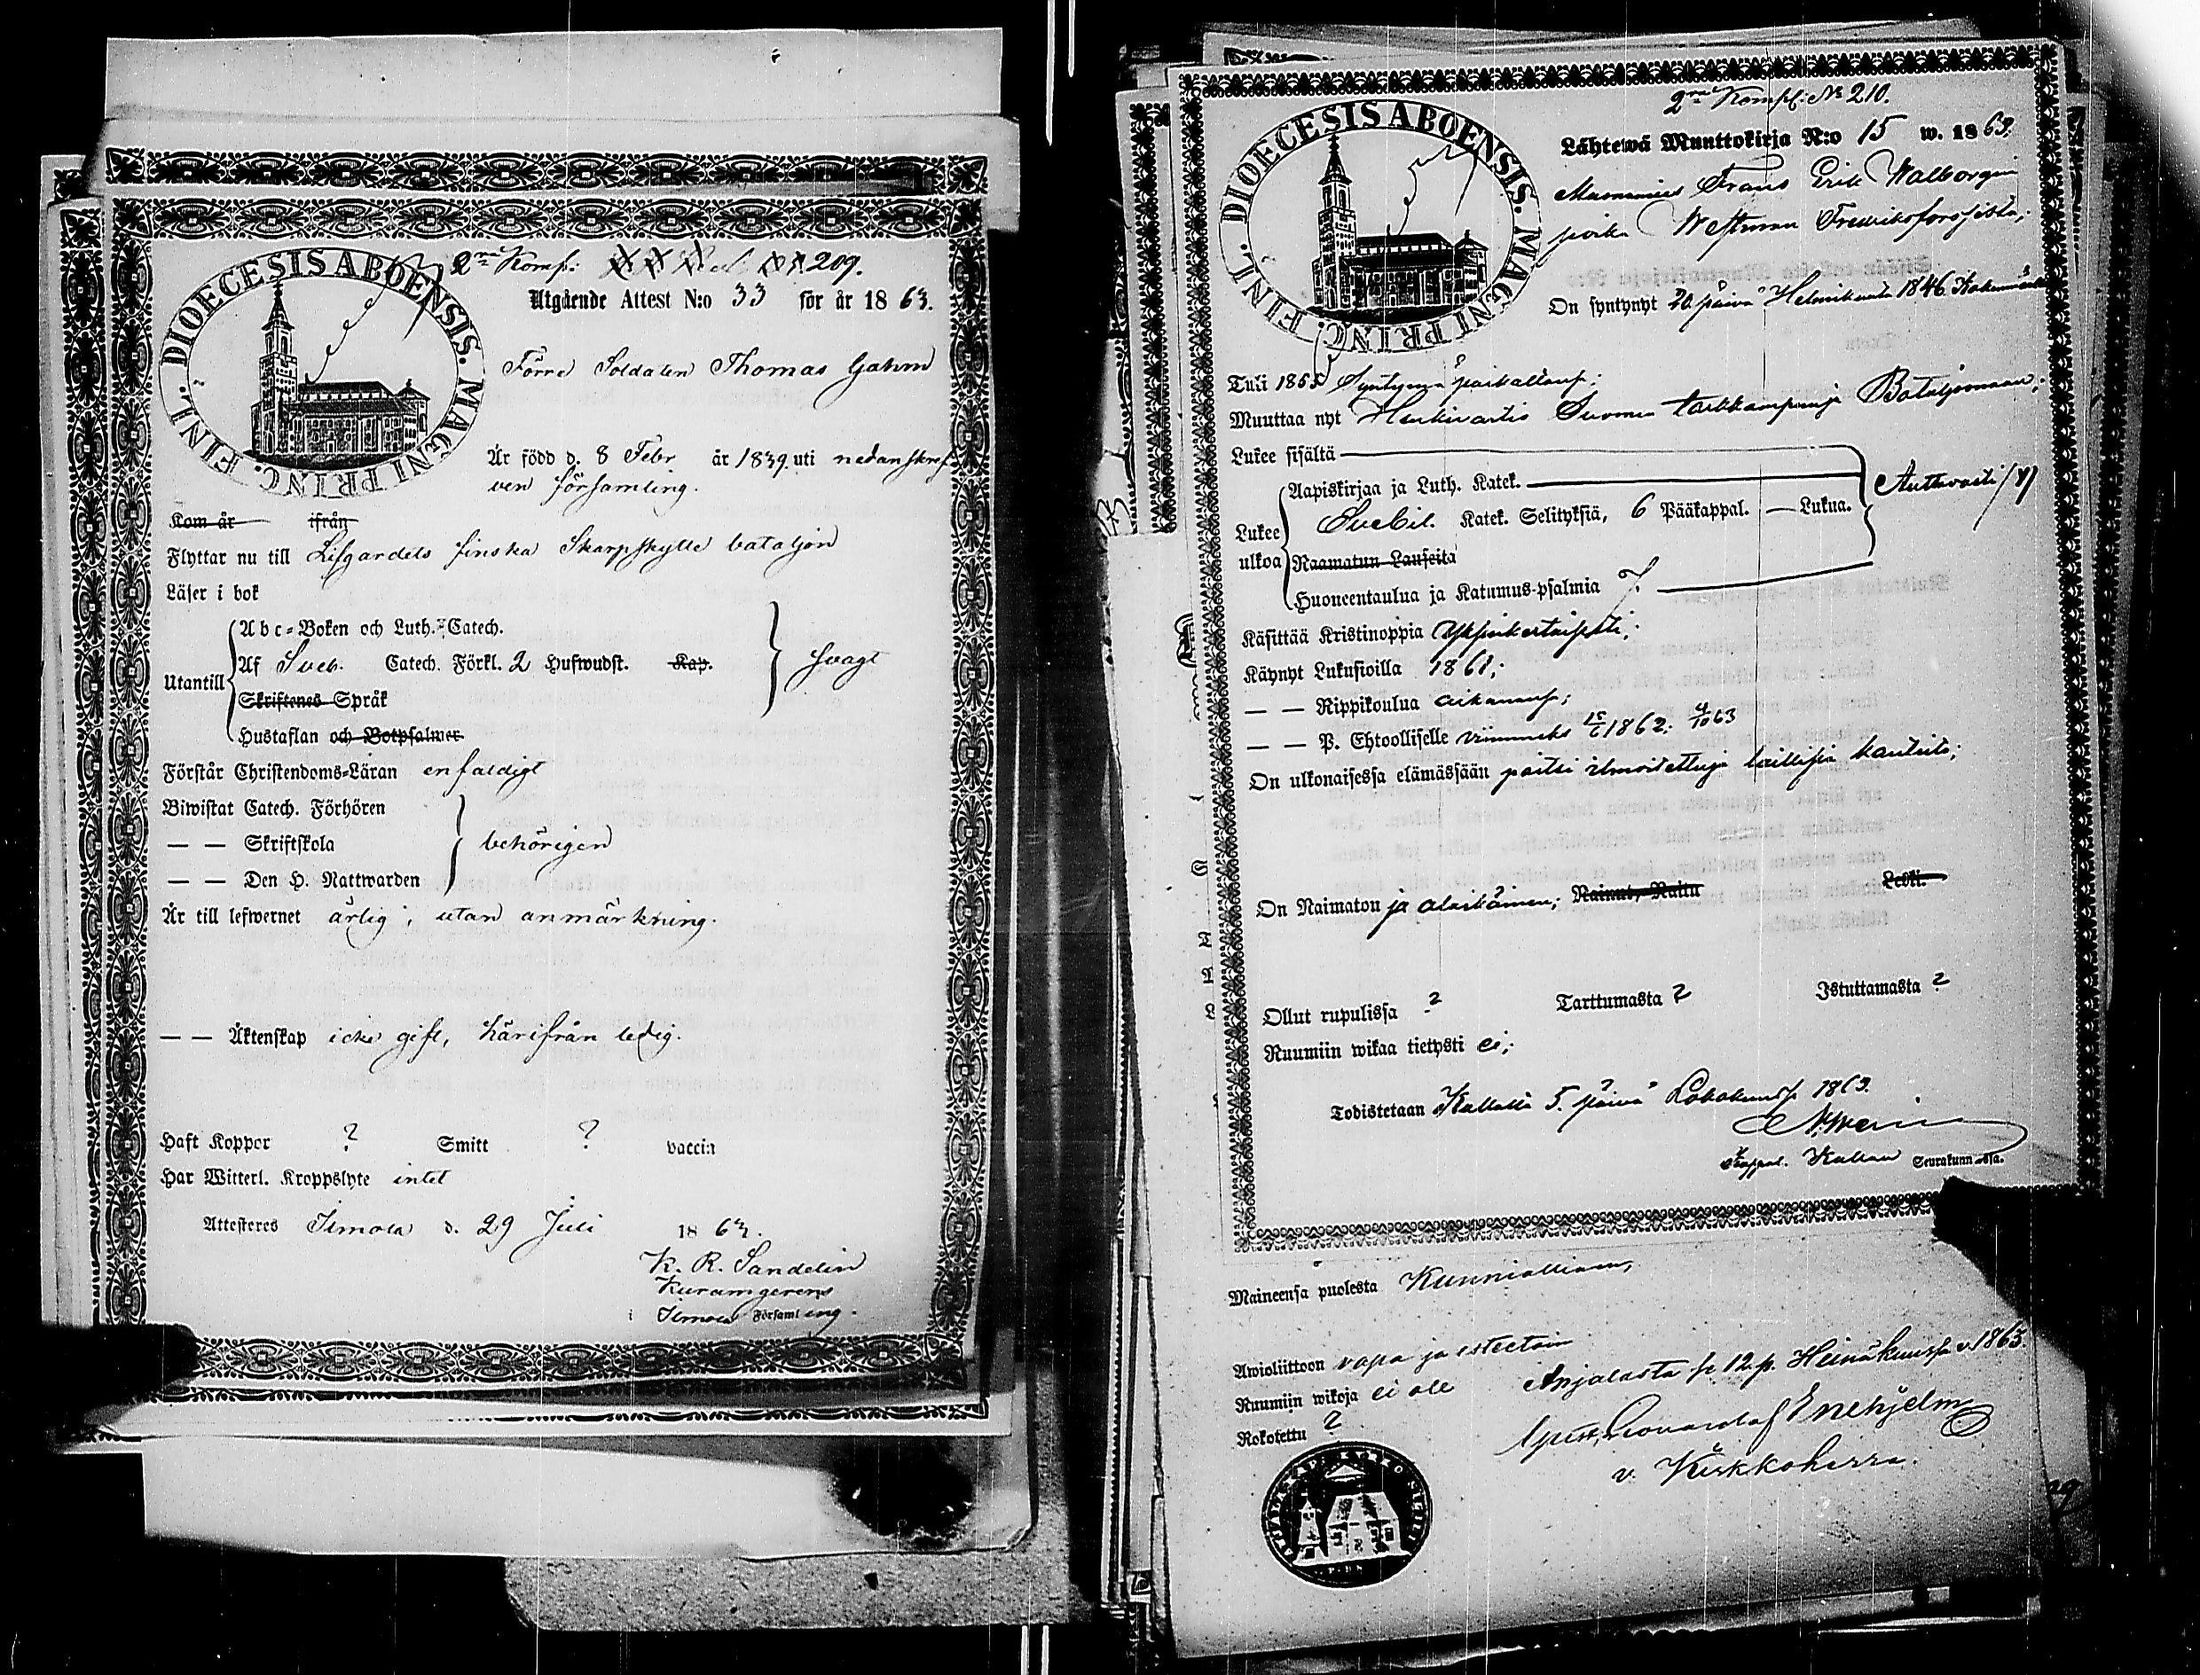 2ra Komp: 209.
Utgående Attest N:o 33 för år 1863.
DIOECESIS ABOENSIS. MAGNI PRINC. FINL.
Förre Soldaten Thomas Gahm
Är född d. 8 Febr. år 1839. uti nedanskref
ven församling.
Kom år ifrån
Flyttar nu till Lifgardets finska Skarpskytte bataljon
Läser i bok
Utantill
Abc-Boken och Luth. Catech.
Af Sveb. Catech. Förkl. 2 Hufwudst. Kap. svagt
Skriftenes Språk
Hustaflan och Botpsalmer
Förstår Christendoms-Läran enfaldigt
Biwistat Catech. Förhören
— — Skriftskola behörigen
— — Den H. Nattwarden
Är till lefwernet ärlig, utan anmärkning.
— — Äktenskap icke gift, härifrån ledig.
Haft Koppor ? Smitt ? vaccin
Har Witterl. Kroppslyte intet
Attesteres Ilmola d. 29 Juli 1863.
K. R. Sandelin
Kuramgerens
i Ilmola Församling.
2ra Komp: No 210.
Lähtewä Muuttokirja N:o 15 w. 1863.
DIOECESIS ABOENSIS. MAGNI PRINC. FINL.
Frans Erik Walborgin
poika Westman Fredriksforssista;
On syntynyt 20 päivä Helmikuuta 1846
Tuli 1855
Muuttaa nyt Henkivartio Suomen tarkkampuja Bataljoonaan;
Lukee sisältä
Lukee ulkoa
Aapiskirjaa ja Luth. Katek.
Svebil. Katek. Selityksiä, 6 Pääkappal. — Lukua.
Raamatun Lauseita
Huoneentaulua ja Katumus-psalmia 7
Käsittää Kristinoppia Yksinkertaisesti;
Käynyt Lukusioilla 1861;
— — Rippikoulua aikanansa;
— — P. Ehtoolliselle viimeeksi 1862. 4/10 63
On ulkonaisessa elämässään paitsi ilmoitettuja laillisia kanteita;
On Naimaton ja alaikäinen; Leski.
Ollut rupulissa ? Tarttumasta ? Istuttamasta ?
Ruumiin wikaa tietysti ei;
Todistetaan 5. päivä Lokakuussa 1863.
Kappal. Seurakunnassa.
Maineensa puolesta Kunniallinen,
Awioliittoon vapa ja esteetöin
Ruumiin wikoja ei ole
Rokotettu ?
Anjalasta se 12 p. Heinäkuussa v. 1863.
Leonard af Enehjelm
v. Kirkkoherra.